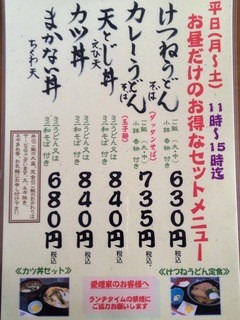 平日(月〜土)
11時〜15時迄
お昼だけのお得なセットメニュー
けつねうどん
又はそば
ご飯(大・中)
小鉢 香物 付き
630円 税込
カレーうどん
又はそば
(ダッタンそば)
ご飯(大・中)
小鉢 香物 付き
735円 税込
天とじ丼
えび天
(玉子麺)
ミニうどん又は
ミニ和そば 付き
840円 税込
カツ丼
ミニうどん又は
ミニ和そば 付き
840円 税込
まかない丼
ちくわ天
ミニうどん又は
ミニ和そば 付き
680円 税込
≪カツ丼セット≫
愛煙家のお客様へ
ランチタイムの禁煙に
ご協力お願いします
≪けつねうどん定食≫